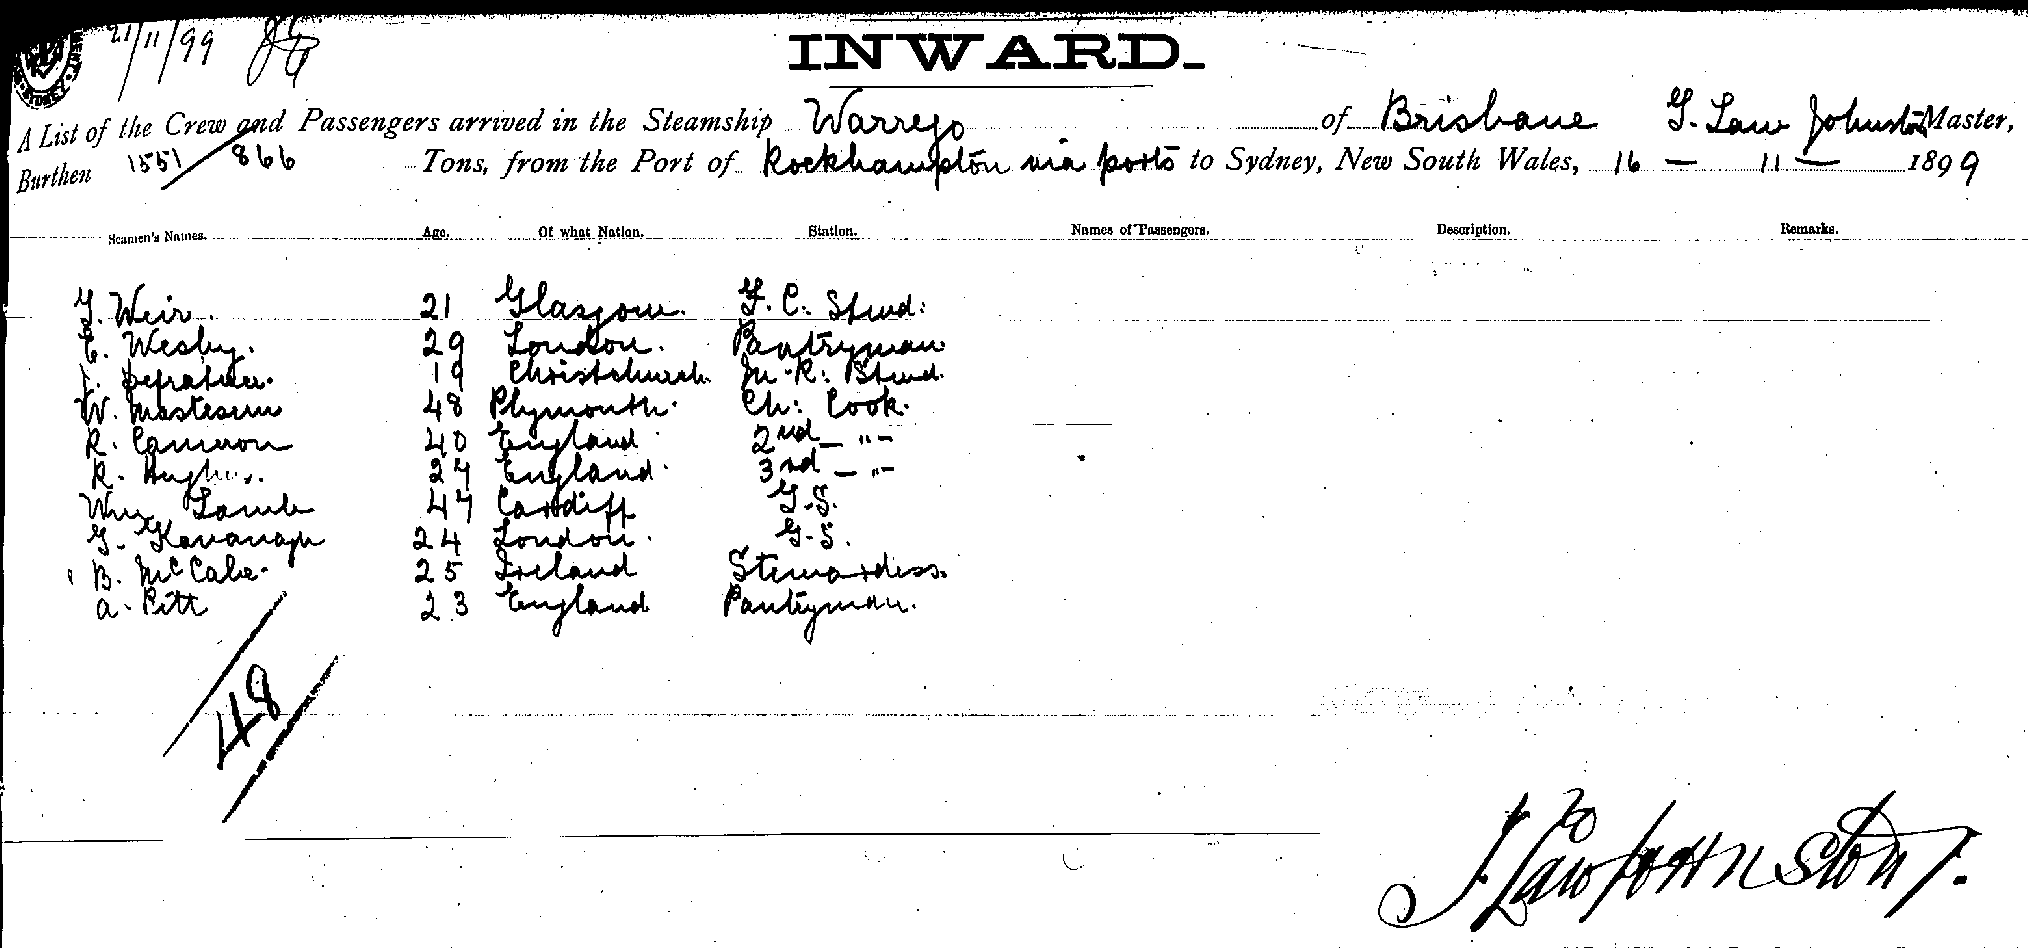 21/11/99
INWARD.
A List of the Crew and Passengers arrived in the Steamship Warrego of Brisbane G. Law Johnston Master,
Burthen 1551/866 Tons, from the Port of Rockhampton via ports to Sydney, New South Wales, 16 - 11 - 1899
Seamen's Names. Age. Of what Nation. Station. Names of Passengers. Description. Remarks.
G. Weir. 21 Glasgow. F. C. Stwd:
E. Wesby. 29 London. Pantryman
19 Christchurch. M. R: Stwd.
W. 48 Plymouth. Ch: Cook.
R. Cameron 40 England 2nd - " -
R. Hughes. 27 England. 3rd - " -
Wm Lamb 47 Cardiff G.S.
G. Kavanagh 24 London. G.S.
B. McCabe. 25 Ireland Stewardess.
A. Pitt 23 England Pantryman.
48
J. Law Johnston